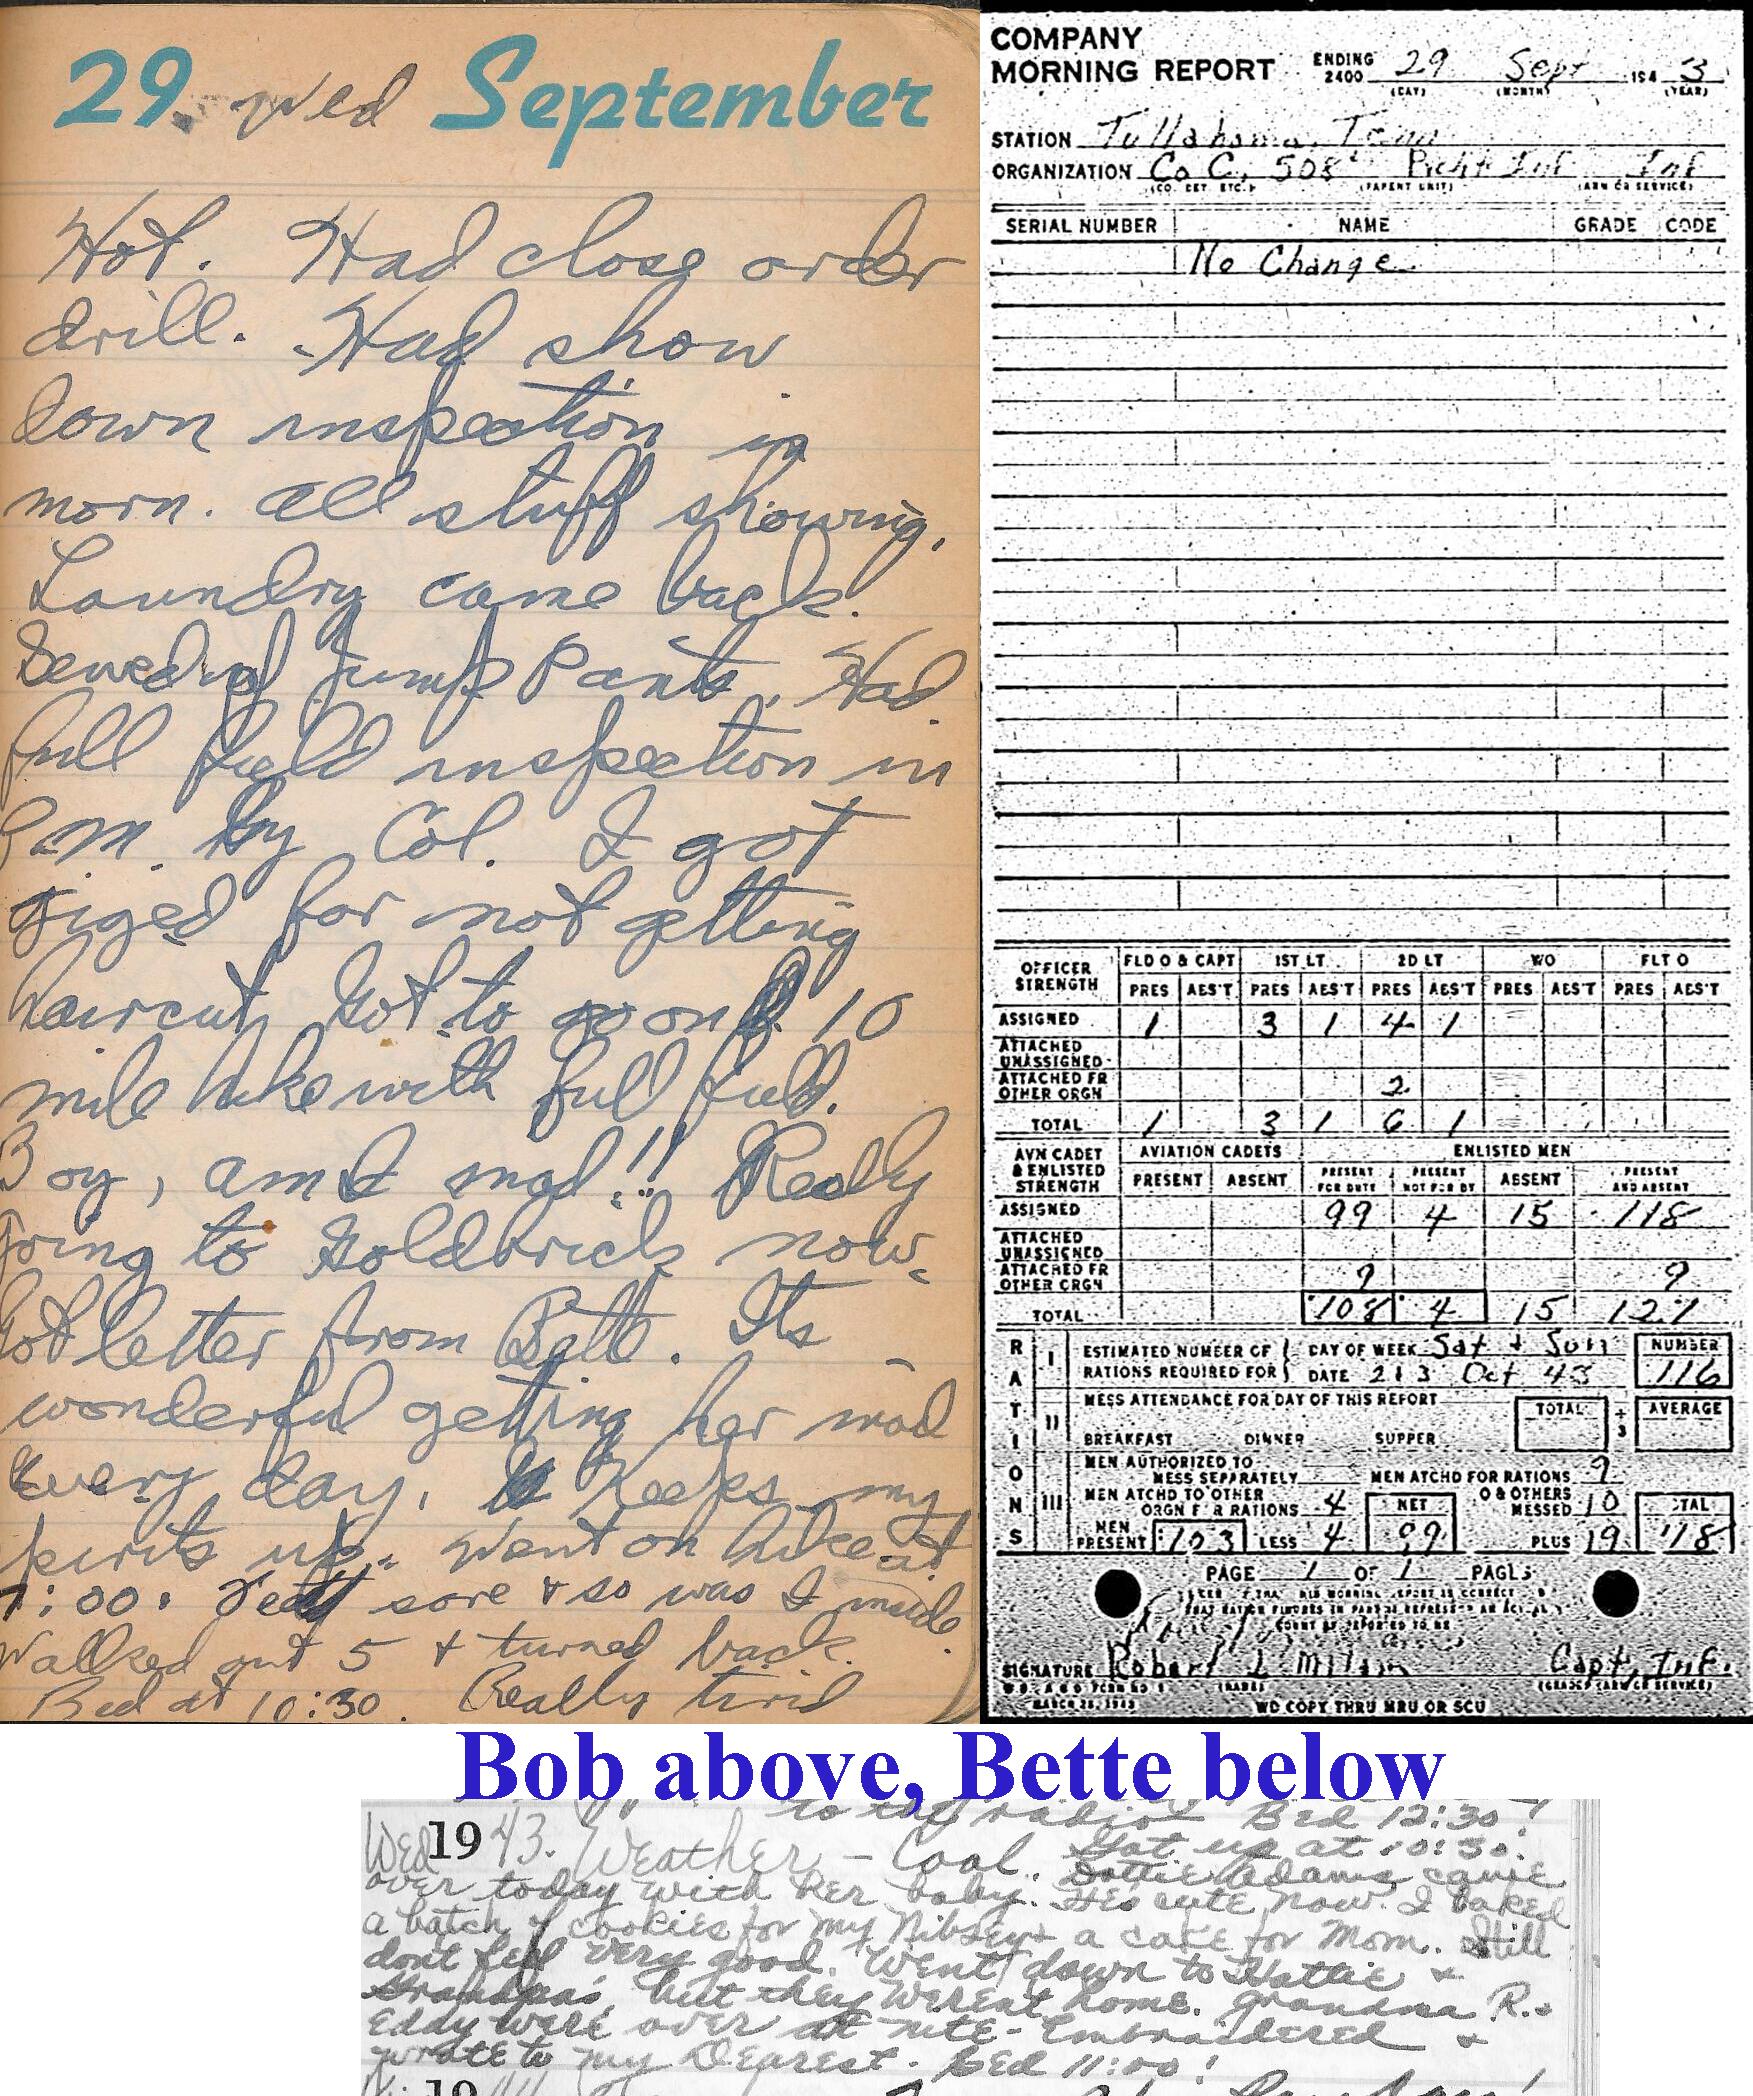 29 Wed September
Hot. Had close order
drill. Had show
down inspection in
morn. All stuff showing.
Laundry came back.
Sewed up Jump Pants. Had
full field inspection in
P.m. by Col. I got
giged for not getting
haircut. Got to go on 10
mile hike with full field.
Boy, am I mad!! Really
going to Goldbrick now.
Got letter from Bette. Its
wonderful getting her mail
every day. Keeps my
spirits up. Went on hike at
7:00. Feet sore & so was I inside.
Walked out 5 & turned back.
Bed at 10:30. Really tired
COMPANY
MORNING REPORT ENDING 2400 29 Sept 194 3
(DAY) (MONTH) (YEAR)
STATION Tullahoma, Tenn
ORGANIZATION Co C, 508 Prcht Inf Inf
(CO. DET. ETC.) (PARENT UNIT) (ARM OR SERVICE)
SERIAL NUMBER NAME GRADE CODE
No Change
OFFICER STRENGTH FLD O & CAPT 1ST LT 2D LT WO FLT O
PRES ABS'T PRES ABS'T PRES ABS'T PRES ABS'T PRES ABS'T
ASSIGNED 1 3 1 4 1
ATTACHED UNASSIGNED
ATTACHED FR OTHER ORGN 2
TOTAL 1 3 1 6 1
AVN CADET & ENLISTED STRENGTH AVIATION CADETS ENLISTED MEN
PRESENT ABSENT PRESENT FOR DUTY PRESENT NOT FOR DY ABSENT PRESENT AND ABSENT
ASSIGNED 99 4 15 118
ATTACHED UNASSIGNED
ATTACHED FR OTHER ORGN 9 9
TOTAL 108 4 15 127
RATIONS
I ESTIMATED NUMBER OF RATIONS REQUIRED FOR DAY OF WEEK Sat & Sun NUMBER
DATE 2 & 3 Oct 43 116
II MESS ATTENDANCE FOR DAY OF THIS REPORT TOTAL ÷ 3 AVERAGE
BREAKFAST DINNER SUPPER
III MEN AUTHORIZED TO MESS SEPARATELY MEN ATCHD FOR RATIONS 9
MEN ATCHD TO OTHER ORGN FOR RATIONS 4 NET & OTHERS MESSED 10 TOTAL
MEN PRESENT 103 LESS 4 99 PLUS 19 118
PAGE 1 OF 1 PAGES
SIGNATURE Robert L Milam Capt, Inf.
(NAME) (GRADE) (ARM OR SERVICE)
MARCH 25, 1943 WD COPY THRU MRU OR SCU
Bob above, Bette below
to the radio. Bed 12:30!
Wed 1943. Weather - Cool. Got up at 10:30.
Dottie Adams came
over today with her baby. He's cute now. I baked
a batch of cookies for my Nibsey & a cake for Mom. Still
dont feel very good. Went down to Hattie &
Grandpas, but they werent home. Grandma R. &
Eddy were over at nite - Embroidered &
wrote to my Dearest. Bed 11:00!
19